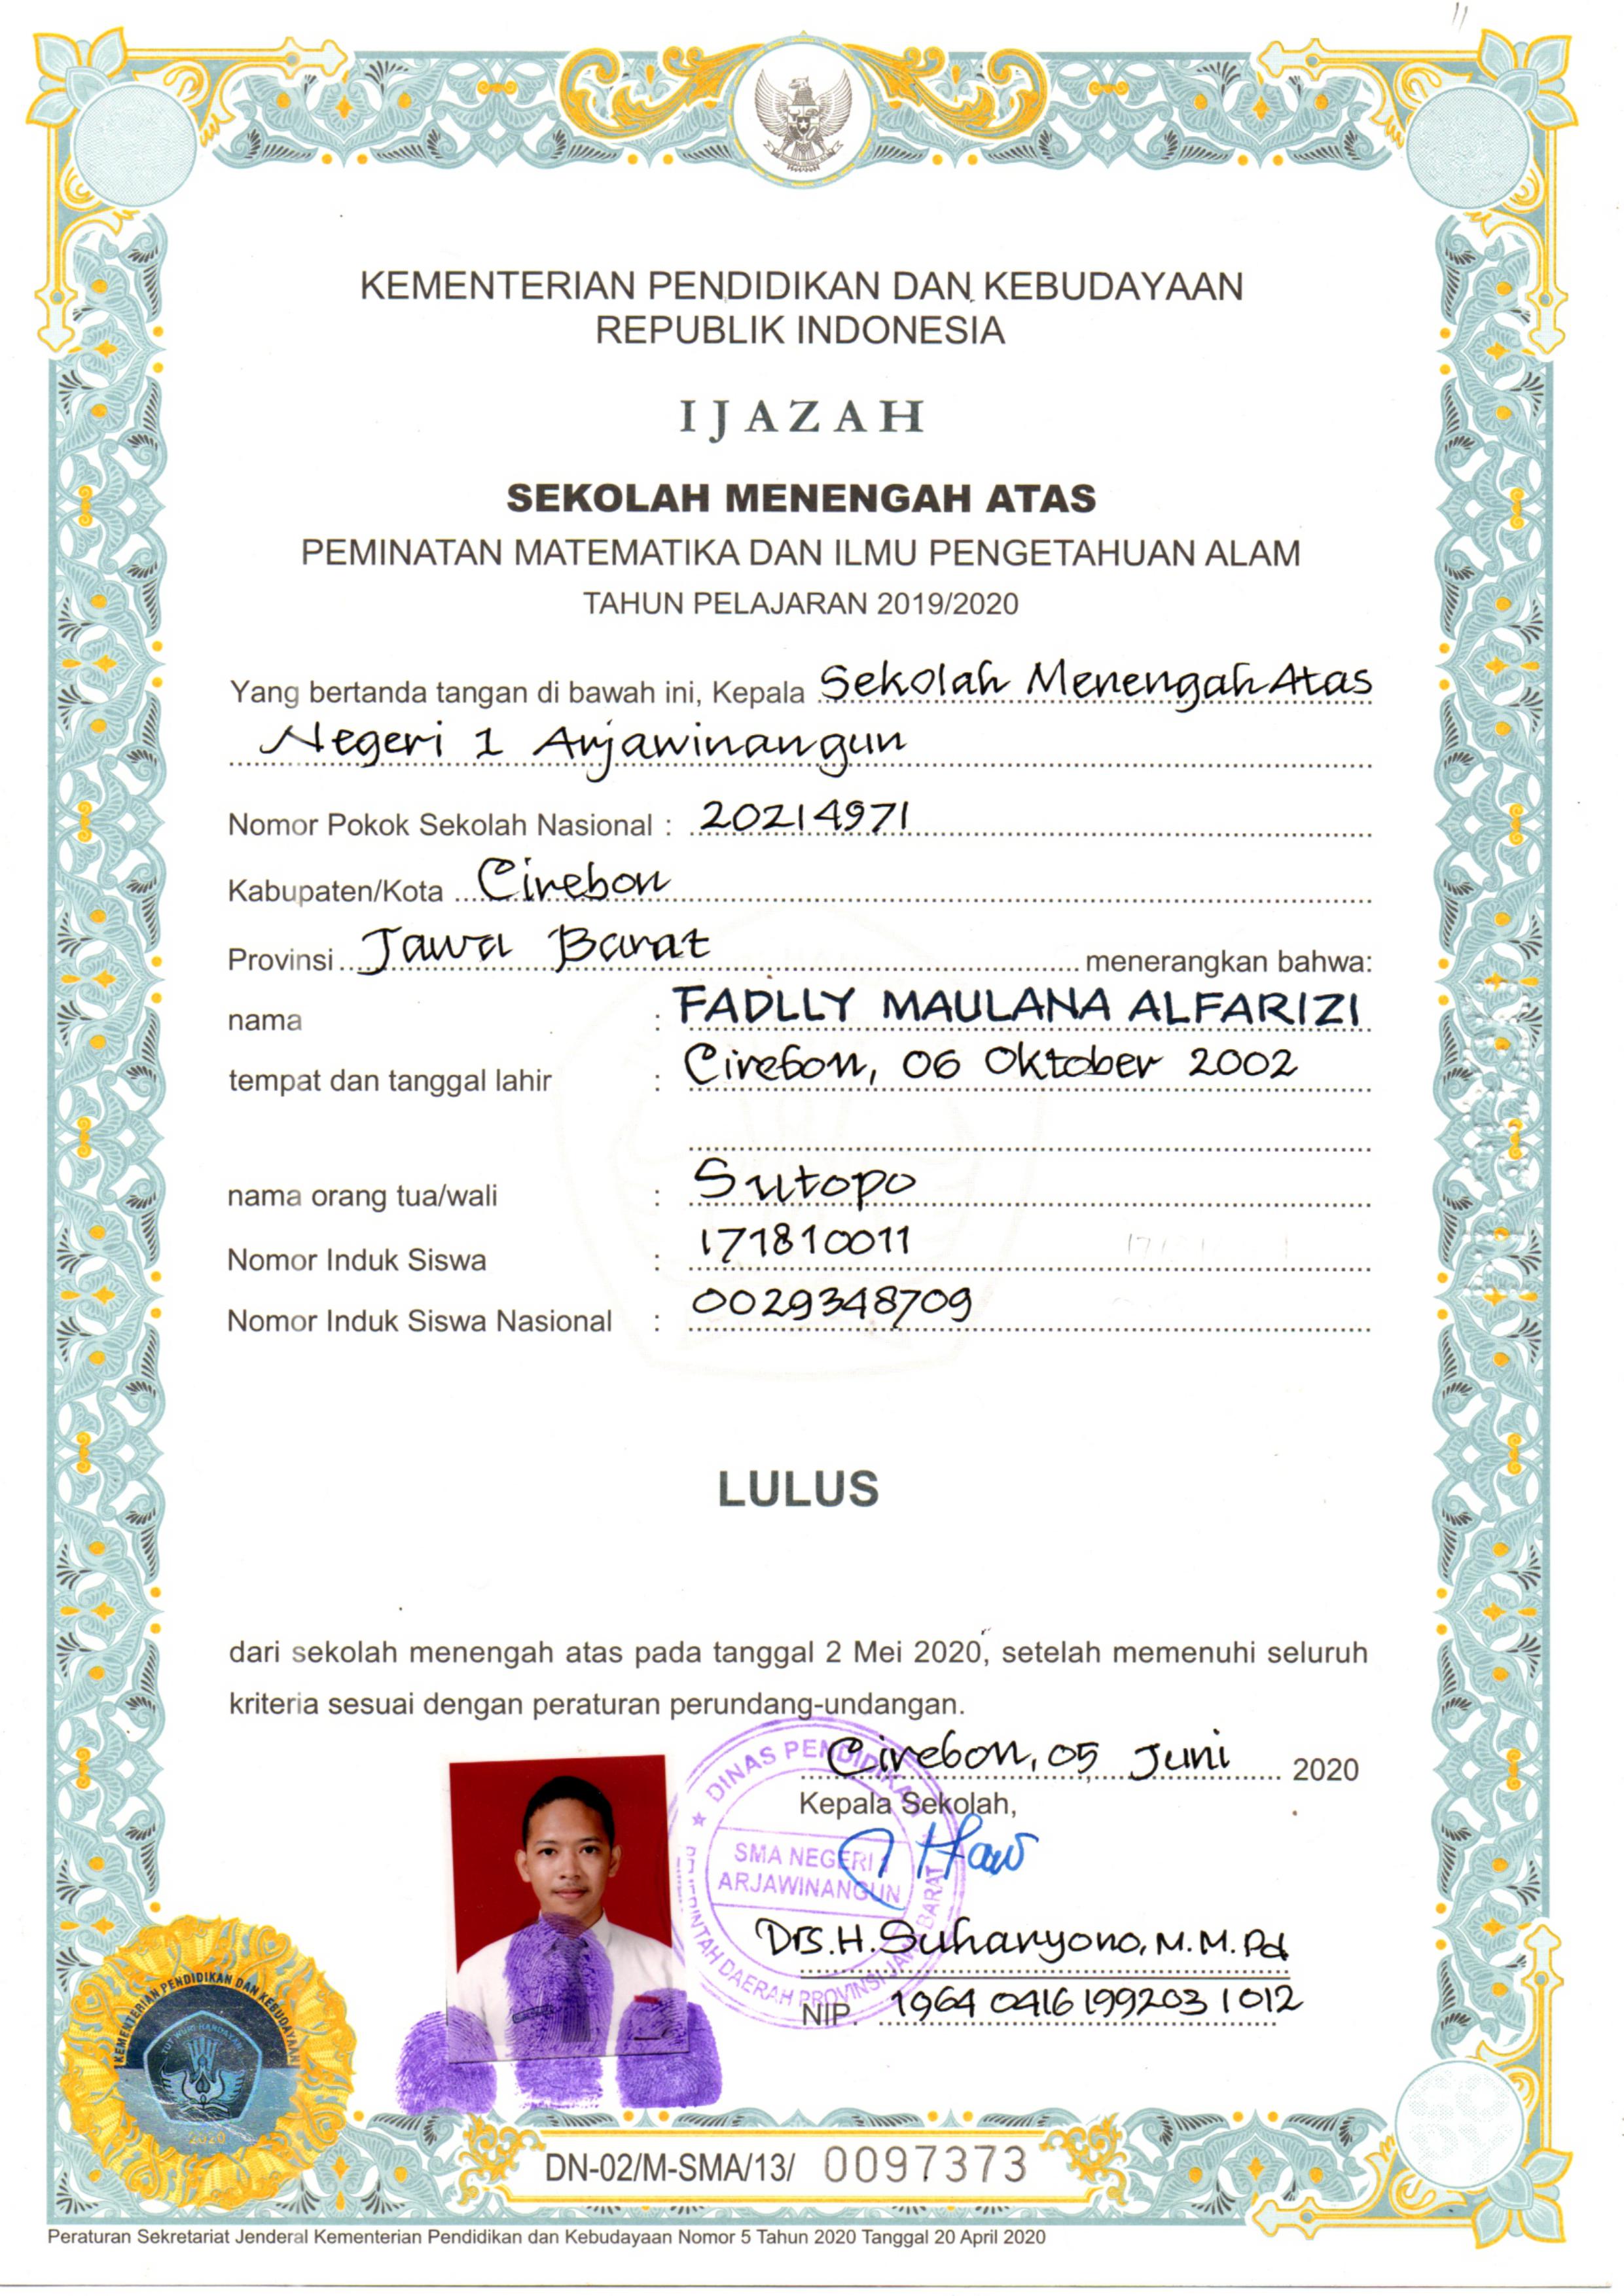 KEMENTERIAN PENDIDIKAN DAN KEBUDAYAAN
REPUBLIK INDONESIA
IJAZAH
SEKOLAH MENENGAH ATAS
PEMINATAN MATEMATIKA DAN ILMU PENGETAHUAN ALAM
TAHUN PELAJARAN 2019/2020
Yang bertanda tangan di bawah ini, Kepala Sekolah Menengah Atas
Negeri 1 Arjawinangun
Nomor Pokok Sekolah Nasional : 20214971
Kabupaten/Kota Cirebon
Provinsi Jawa Barat menerangkan bahwa:
nama : FADLLY MAULANA ALFARIZI
tempat dan tanggal lahir : Cirebon, 06 Oktober 2002
nama orang tua/wali : Sutopo
Nomor Induk Siswa : 171810011
Nomor Induk Siswa Nasional : 0029348709
LULUS
dari sekolah menengah atas pada tanggal 2 Mei 2020, setelah memenuhi seluruh
kriteria sesuai dengan peraturan perundang-undangan.
Cirebon, 05 Juni 2020
Kepala Sekolah,
DINAS PENDIDIKAN
SMA NEGERI 1
ARJAWINANGUN
PEMERINTAH DAERAH PROVINSI JAWA BARAT
Drs. H. Suharyono, M.M.Pd
NIP. 1964 0416 199203 1 012
KEMENTERIAN PENDIDIKAN DAN KEBUDAYAAN
TUT WURI HANDAYANI
2020
DN-02/M-SMA/13/ 0097373
Peraturan Sekretariat Jenderal Kementerian Pendidikan dan Kebudayaan Nomor 5 Tahun 2020 Tanggal 20 April 2020